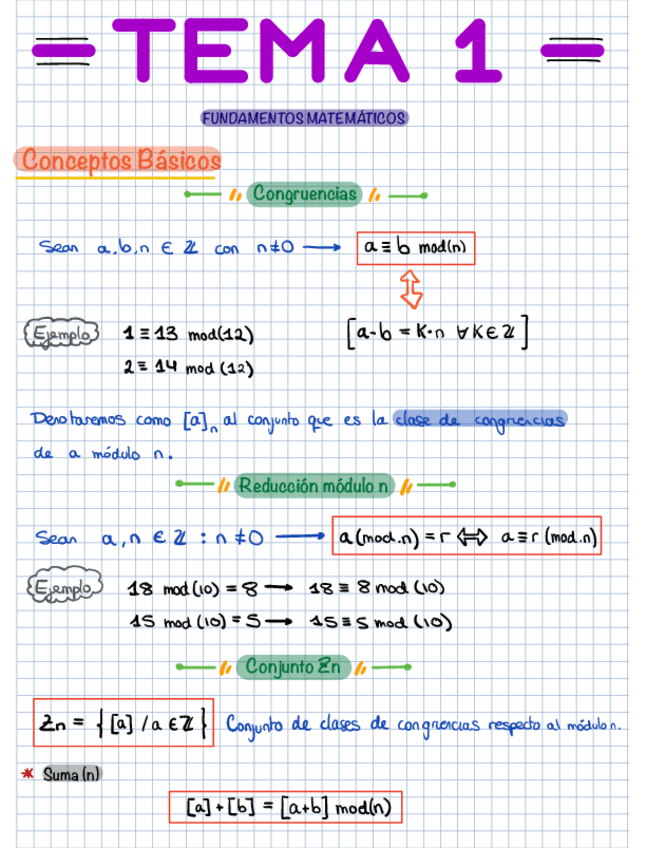 TEMA 1
FUNDAMENTOS MATEMÁTICOS
Conceptos Básicos
Congruencias
Sean a,b,n ∈ ℤ con n≠0 → a ≡ b mod(n)
Ejemplo 1 ≡ 13 mod(12) [a-b = K·n ∀K∈ℤ]
2 ≡ 14 mod (12)
Denotaremos como [a]n al conjunto que es la clase de congruencias
de a módulo n.
Reducción módulo n
Sean a,n ∈ ℤ : n ≠0 → a(mod.n) = r ⇔ a≡r (mod.n)
Ejemplo 18 mod(10) = 8 → 18 ≡ 8 mod (10)
15 mod (10) = 5 → 15 ≡ 5 mod (10)
Conjunto Zn
Zn = {[a] / a ∈ ℤ} Conjunto de clases de congruencias respecto al módulo n.
* Suma (n)
[a]+[b] = [a+b] mod(n)